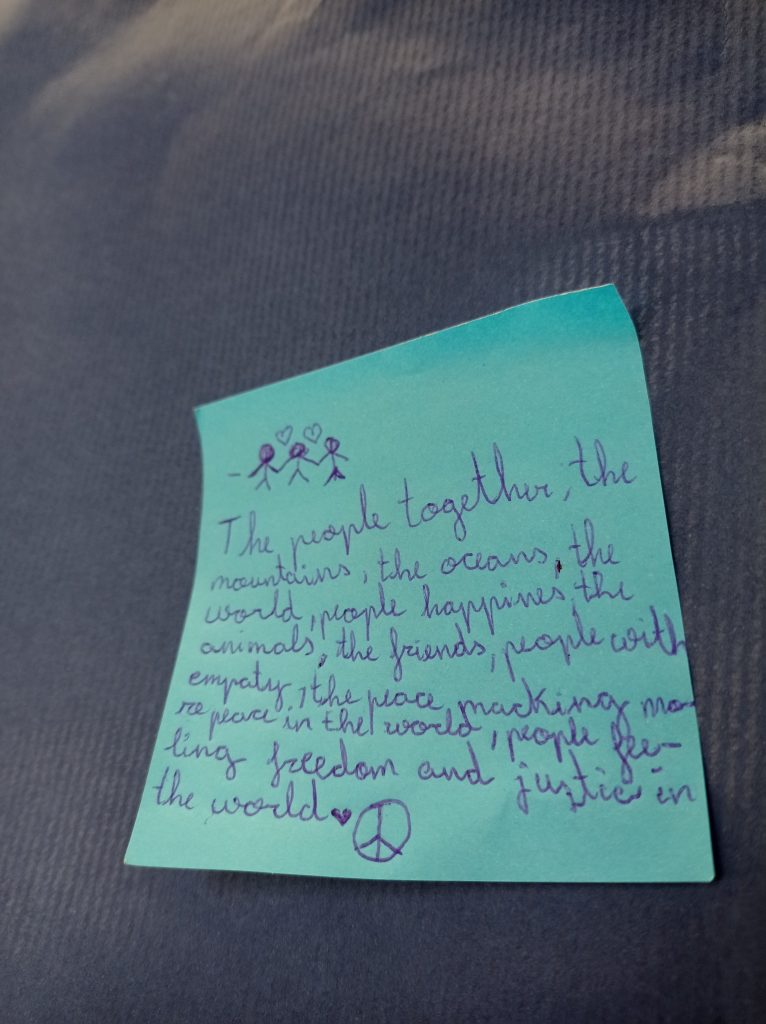 The people together, the
mountains, the oceans, the
world, people happines, the
animals, the friends, people with
empaty, the peace, macking mo-
re peace in the world, people fee-
ling freedom and justice in
the world